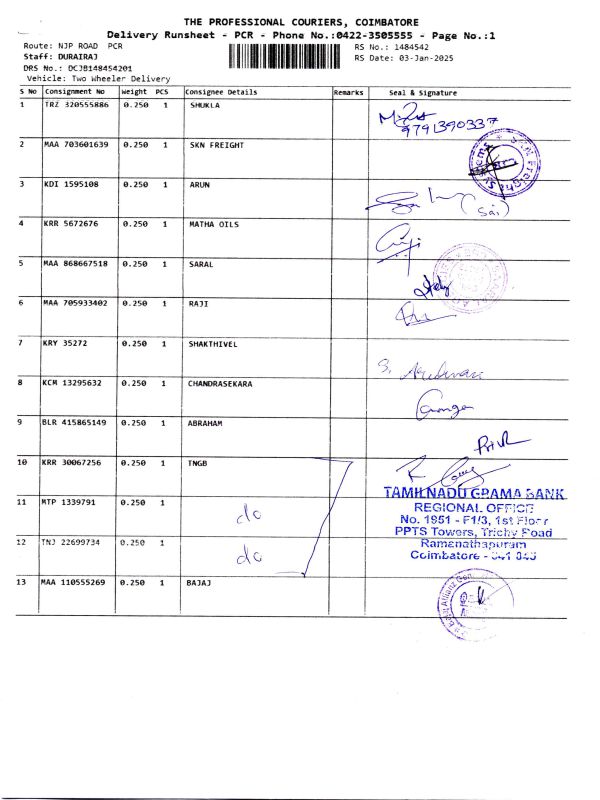 THE PROFESSIONAL COURIERS, COIMBATORE
Delivery Runsheet - PCR - Phone No.:0422-3505555 - Page No.:1
Route: NJP ROAD PCR
RS No.: 1484542
Staff: DURAIRAJ
RS Date: 03-Jan-2025
DRS No.: DCJB148454201
Vehicle: Two Wheeler Delivery
S No Consignment No Weight PCS Consignee Details Remarks Seal & Signature
1 TRZ 320555886 0.250 1 SHUKLA
9791390337
2 MAA 703601639 0.250 1 SKN FREIGHT
3 KDI 1595108 0.250 1 ARUN
(Sai)
4 KRR 5672676 0.250 1 MATHA OILS
5 MAA 868667518 0.250 1 SARAL
6 MAA 705933402 0.250 1 RAJI
7 KRY 35272 0.250 1 SHAKTHIVEL
8 KCM 13295632 0.250 1 CHANDRASEKARA
9 BLR 415865149 0.250 1 ABRAHAM
10 KRR 30067256 0.250 1 TNGB
11 MTP 1339791 0.250 1 do
12 TNJ 22699734 0.250 1 do
TAMILNADU GRAMA BANK
REGIONAL OFFICE
No. 1951 - F1/3, 1st Floor
PPTS Towers, Trichy Road
Ramanathapuram
Coimbatore - 641 045
13 MAA 110555269 0.250 1 BAJAJ